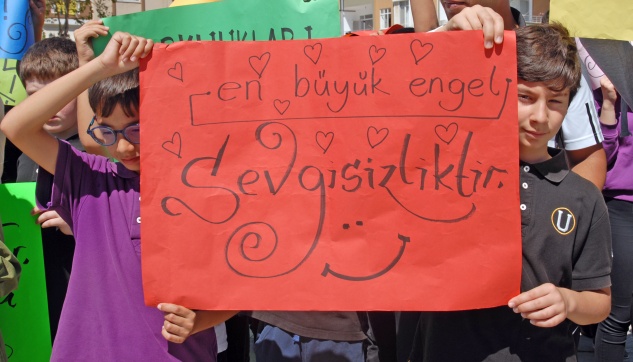 UKLARI
en büyük engel
Sevgisizliktir.
U